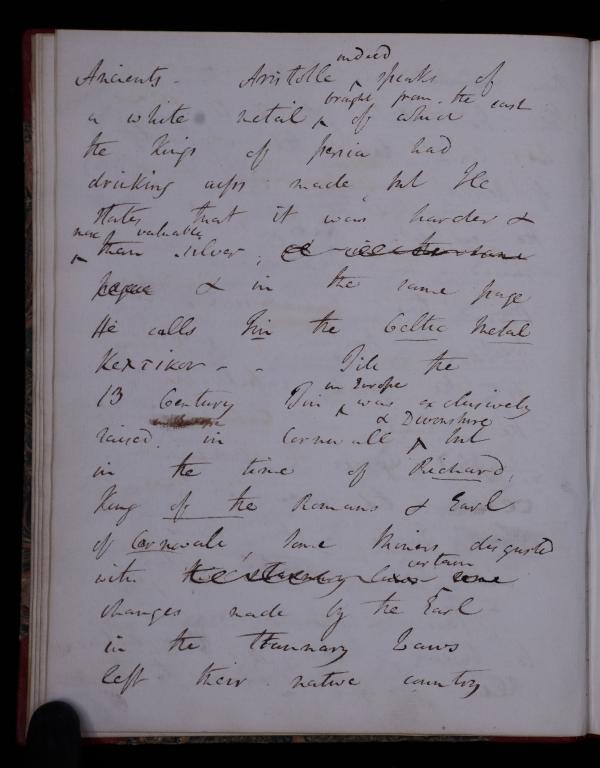 indeed
Ancients - Aristotle ^ speaks of
brought from the east
a white metal ^ of which
the Kings of Persia had
drinking cups made, but He
states that it was harder &
more valuable
^ than silver; & in the same
page & in the same page
He calls Tin the Celtic Metal
Κελτικον - - Till the
in Europe
13 Century Tin ^ was exclusively
in Europe & Devonshire
raised in Cornwall ^ but
in the time of Richard,
King of the Romans & Earl
of Cornwale, some Miners disgusted
certain
with the stannary laws some
changes made by the Earl
in the Stannary Laws
left their native country